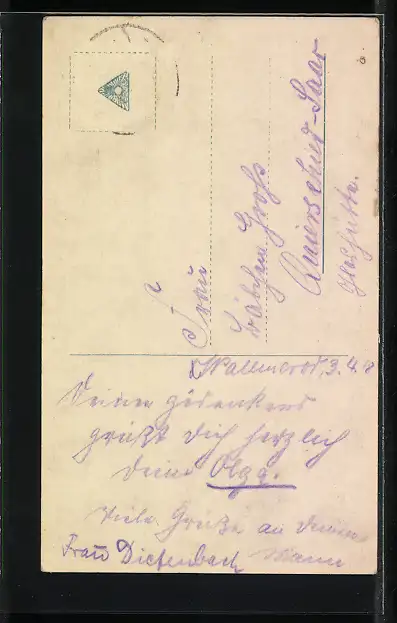 Frau
Käthchen Groß
Quierschied-Saar
Glashütte.
Wallmerod, 3. 4.
Deiner gedenkend
grüßt Dich herzlich
Deine Olga.
Viele Grüße an Deinen
Mann
Frau Diefenbach